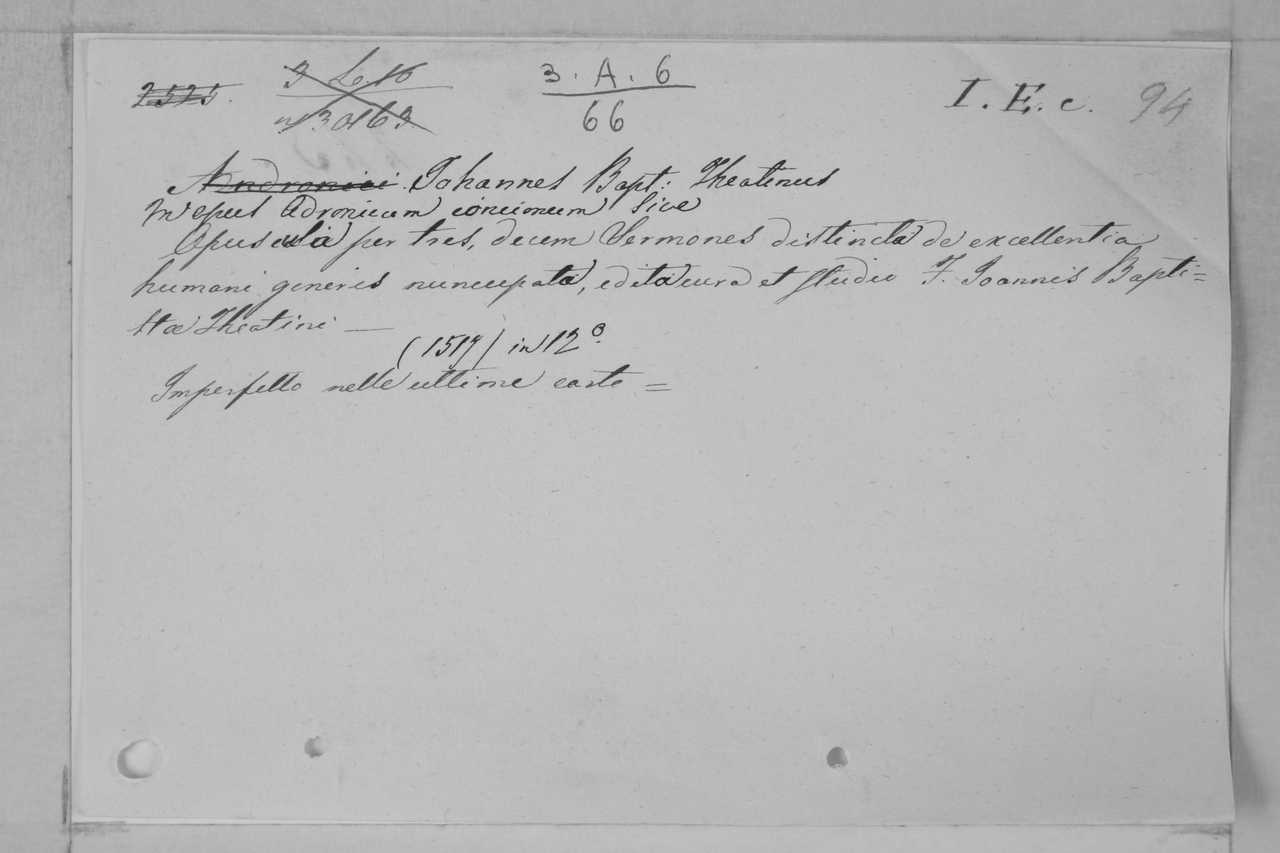 2525. 3 Le 16 3. A. 6 I. E. c. 94
n 30163 66
Andronici Johannes Bapt: Theatinus
In opus Adronicum concionum sive
Opuscula per tres, decem Sermones distincta de excellentia
humani generis nuncupata, edita cura et studio F. Joannis Bapti=
stæ Theatini —
(1517) in 12º.
Imperfetto nelle ultime carte =